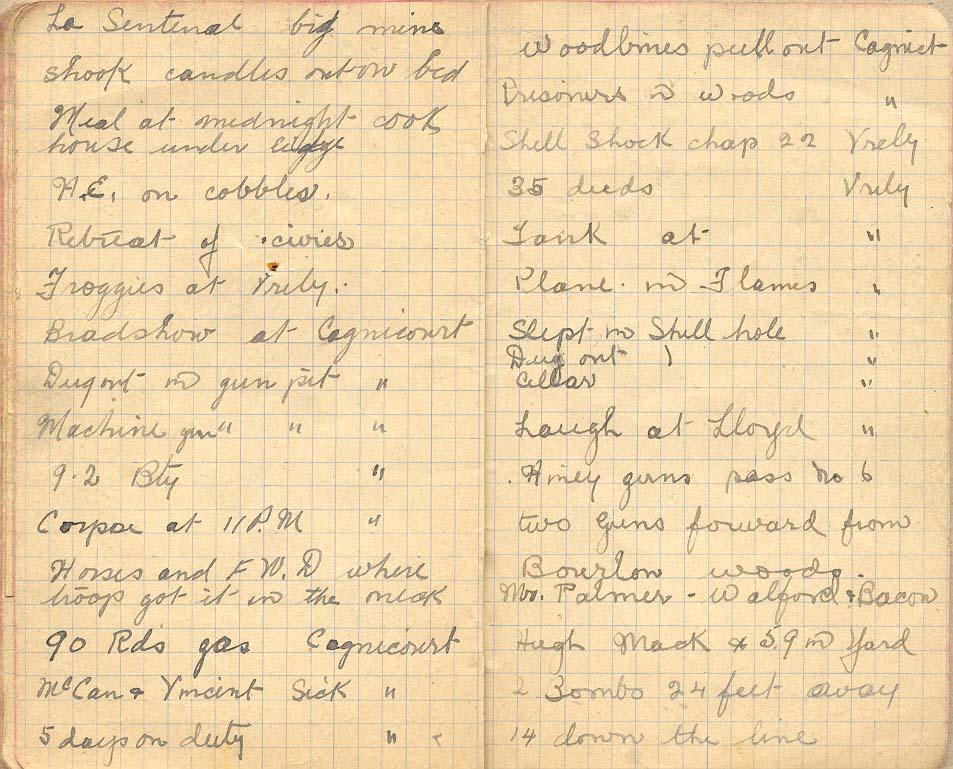 La Sentenal big mine
shook candles out ow bed
Meal at mednight cook
house under
H.E. on cobbles.
Retreat of civies
Froggies at Vrely.
Bradshow at Cagnicourt
Dugout in gun pit "
Machine gun " " "
9.2 Bty "
Corpse at 11 P.M "
Horses and F.W.D where
troops got it in the neck
90 Rds gas Cagnicourt
McCan & Vincent Sick "
5 days on duty "
Woodbines pull out Cagnict
Prisoners in woods "
Shell Shock chap 22 Vrely
35 deeds Vrely
Tank at "
Plane in Flames "
Slept in Shell hole "
Dug out ) "
Cellar "
Laugh at Lloyd "
Hiney guns pass No 6
two guns forward from
Bourlon woods.
Mr. Palmer - Walford & Bacon
Hugh Mack & 5.9 in Yard
2 Bombs 24 feet away
14 down the line